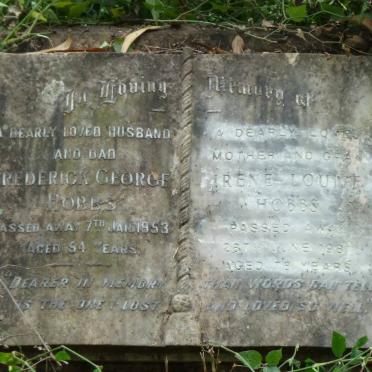 In Loving Memory of
A DEARLY LOVED HUSBAND
AND DAD
FREDERICK GEORGE
HOBBS
PASSED AWAY 7TH JAN. 1953
AGED 54 YEARS.
DEARER IN MEMORY
IS THE ONE I LOST
A DEARLY LOVED
MOTHER AND
IRENE LOUIE
HOBBS
PASSED AWAY
JUNE
AGED YEARS
THAN WORDS CAN TELL
AND LOVED SO WELL